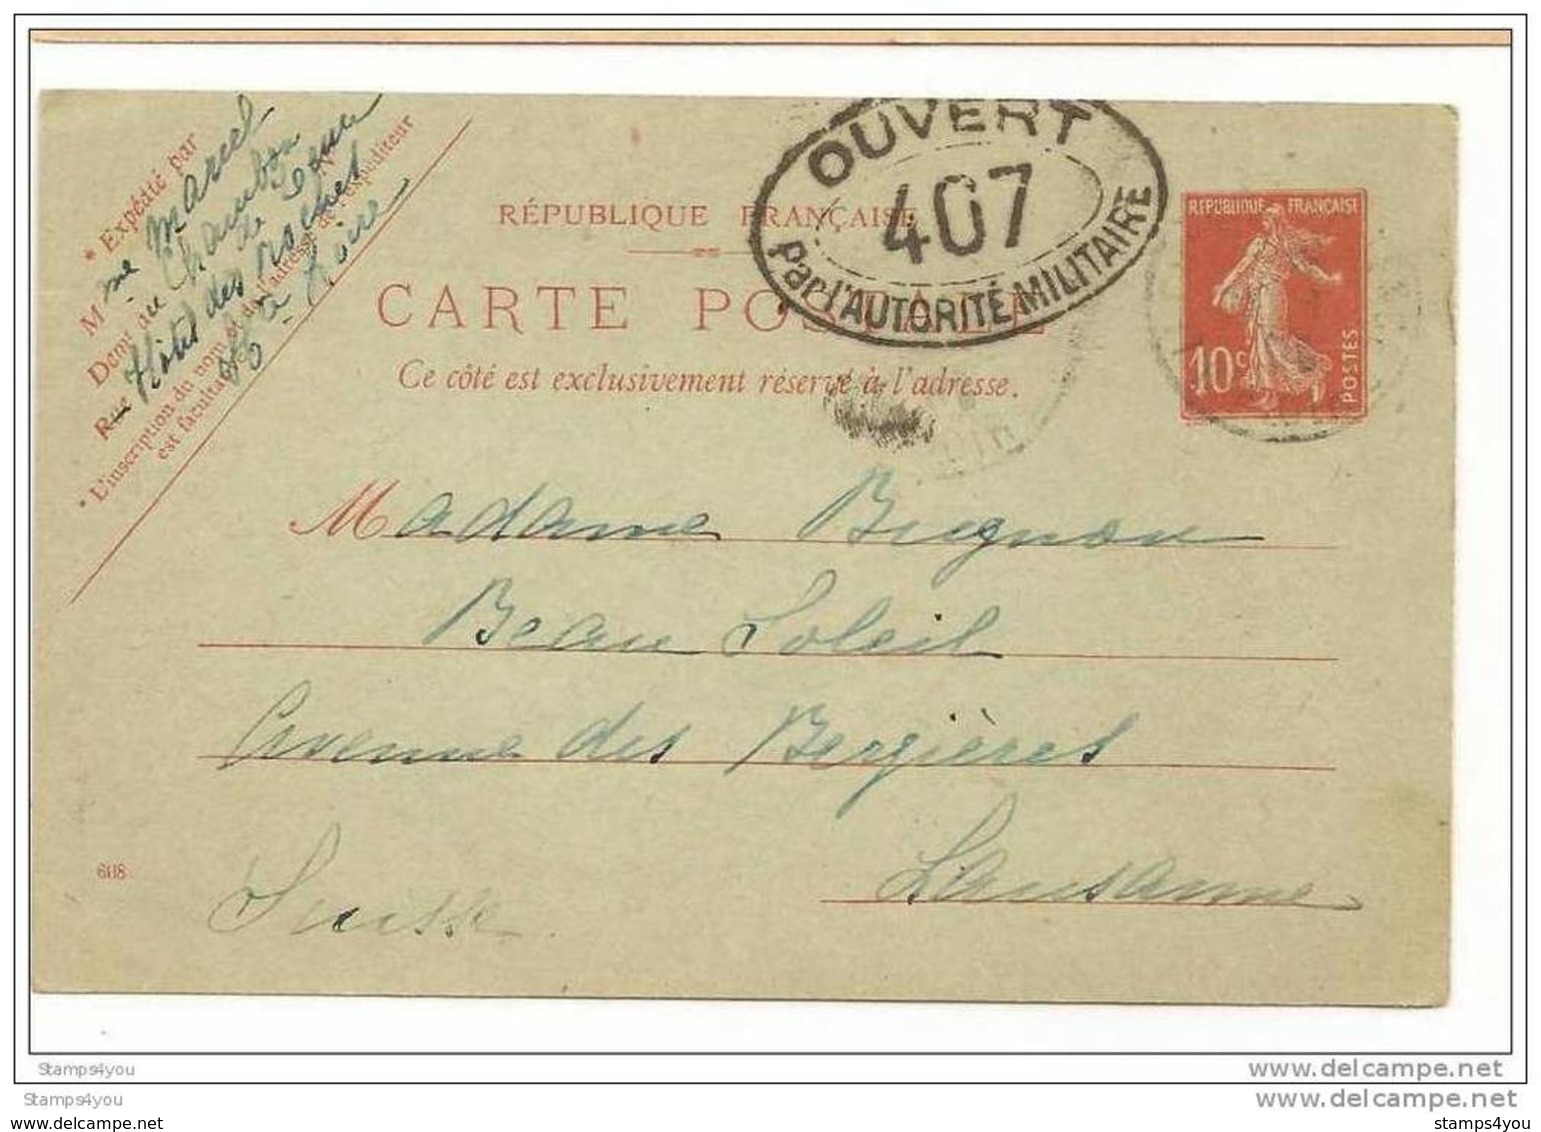 * Expédié par
Mme Marcel
Demt au Chambon
Rue Hôtel des
Hte Loire
* L'inscription du nom et de l'adresse de l'expéditeur
est facultative
RÉPUBLIQUE FRANÇAISE
CARTE POSTALE
Ce côté est exclusivement réservé à l'adresse.
OUVERT
407
Par l'AUTORITÉ MILITAIRE
RÉPUBLIQUE FRANÇAISE
10c
POSTES
Madame Bugnon
Beau Soleil
Avenue des Bergières
Lausanne
Suisse.
608
Stamps4you
www.delcampe.net
Stamps4you
www.delcampe.net
stamps4you